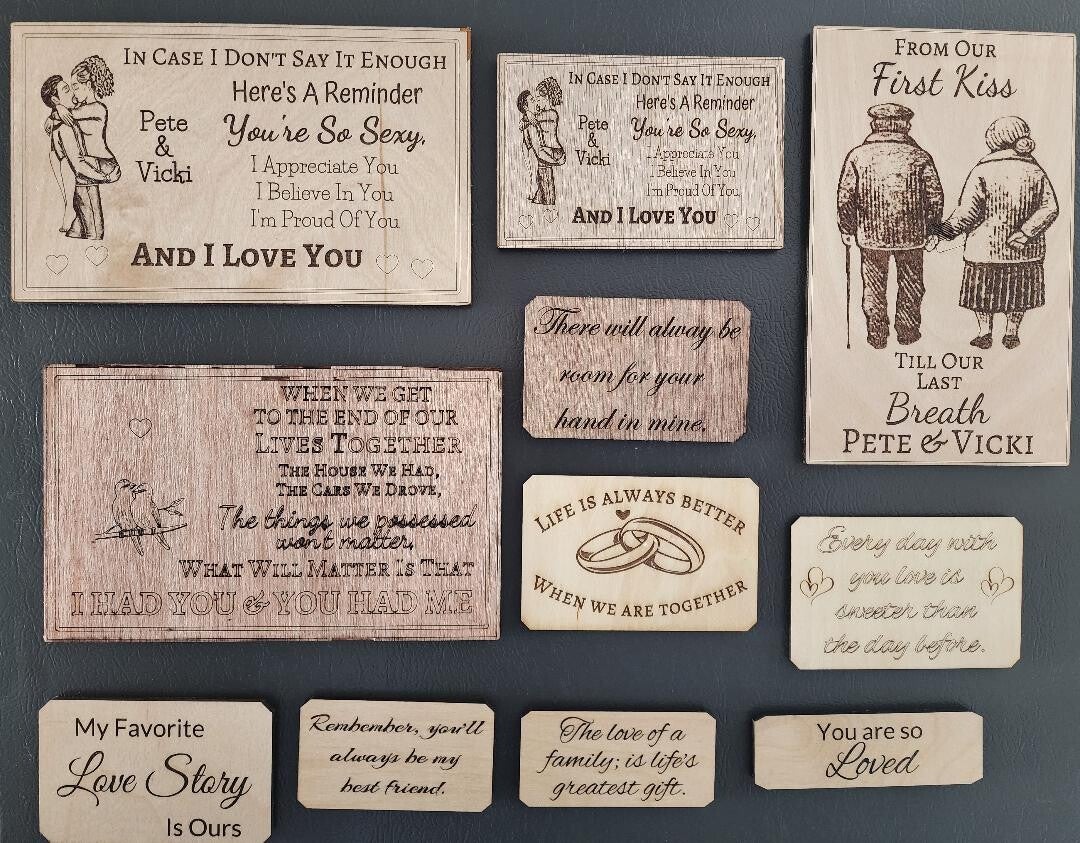 In Case I Don't Say It Enough
Here's A Reminder
You're So Sexy,
Pete
&
Vicki
I Appreciate You
I Believe In You
I'm Proud Of You
And I Love You
In Case I Don't Say It Enough
Here's A Reminder
You're So Sexy,
Pete
&
Vicki
I Appreciate You
I Believe In You
I'm Proud Of You
And I Love You
From Our
First Kiss
Till Our
Last
Breath
Pete & Vicki
There will alway be
room for your
hand in mine.
When We Get
To The End Of Our
Lives Together
The House We Had,
The Cars We Drove,
The things we possessed
won't matter,
What Will Matter Is That
I Had You & You Had Me
Life is always better
when we are together
Every day with
you love is
sweeter than
the day before.
My Favorite
Love Story
Is Ours
Rembember, you'll
always be my
best friend.
The love of a
family; is life's
greatest gift.
You are so
Loved